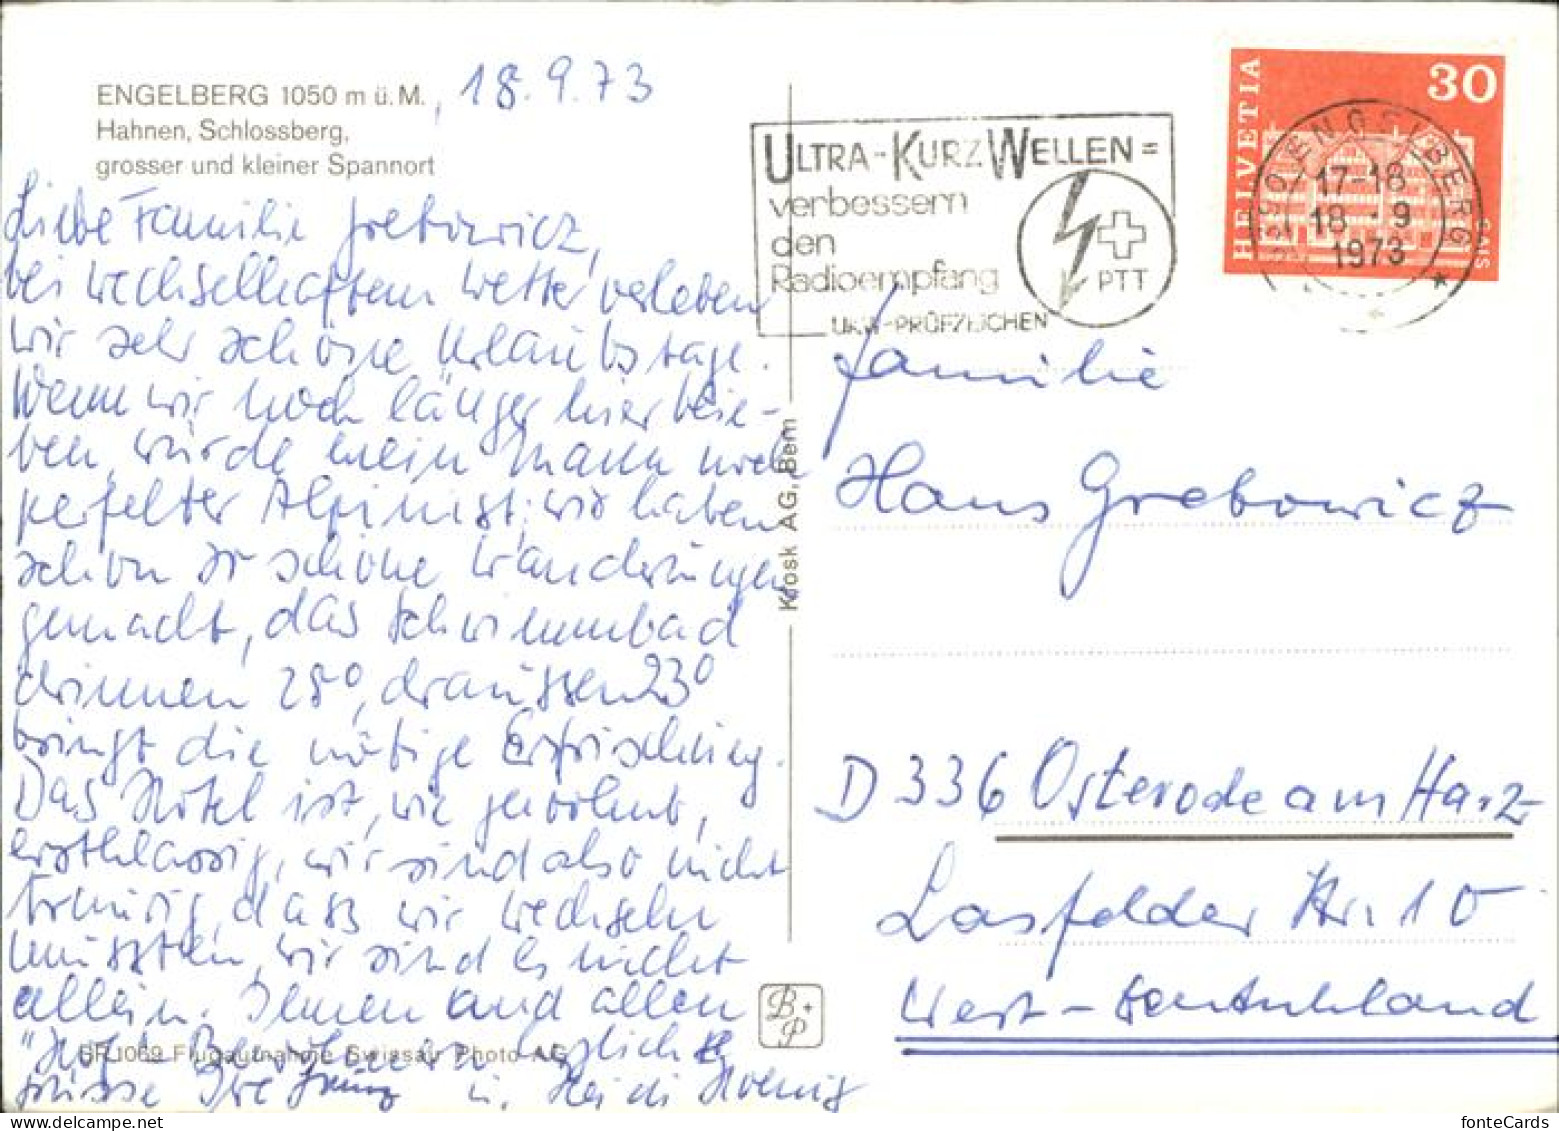 ENGELBERG 1050 m ü.M., 18.9.73
Hahnen, Schlossberg,
grosser und kleiner Spannort
Liebe Familie Grebowicz,
bei wechselhaftem Wetter verleben
wir sehr schöne Urlaubstage.
Wenn wir noch länger hier blei-
ben, würde mein Mann noch
perfekter Alpinist, wir haben
schon so schöne Wanderungen
gemacht, das Schwimmbad
drinnen 28°, draussen 23°
bringt die nötige Erfrischung.
Das Hotel ist, wie gewohnt,
erstklassig, wir sind also nicht
traurig, dass wir wechseln
mussten, wir sind es nicht
allein. Ihnen und allen
"Hof"-Bewohnern herzliche
Grüsse Ihre Heinz u. Heidi Hoenig
BR 1069 Flugaufnahme Swissair Photo AG
Kiosk AG, Bern
B+P
ULTRA-KURZWELLEN=
verbessern
den
Radioempfang
UKW-PRÜFZEICHEN
PTT
HELVETIA
30
GAIS
ENGELBERG
17-18
18.-9
1973
Familie
Hans Grebowicz
D 336 Osterode am Harz
Lasfelder Str. 10
West-Deutschland
fonteCards